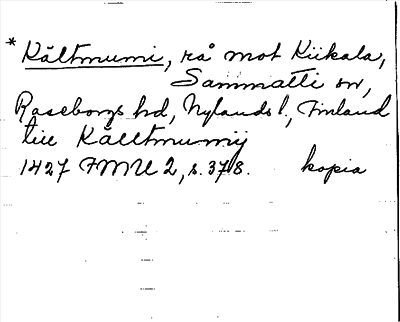 * Kältmumi, rå mot Kiikala,
Sammatti sn,
Raseborgs hd, Nylands l., Finland
till Källtmumij
1427 FMU 2, s. 378. kopia